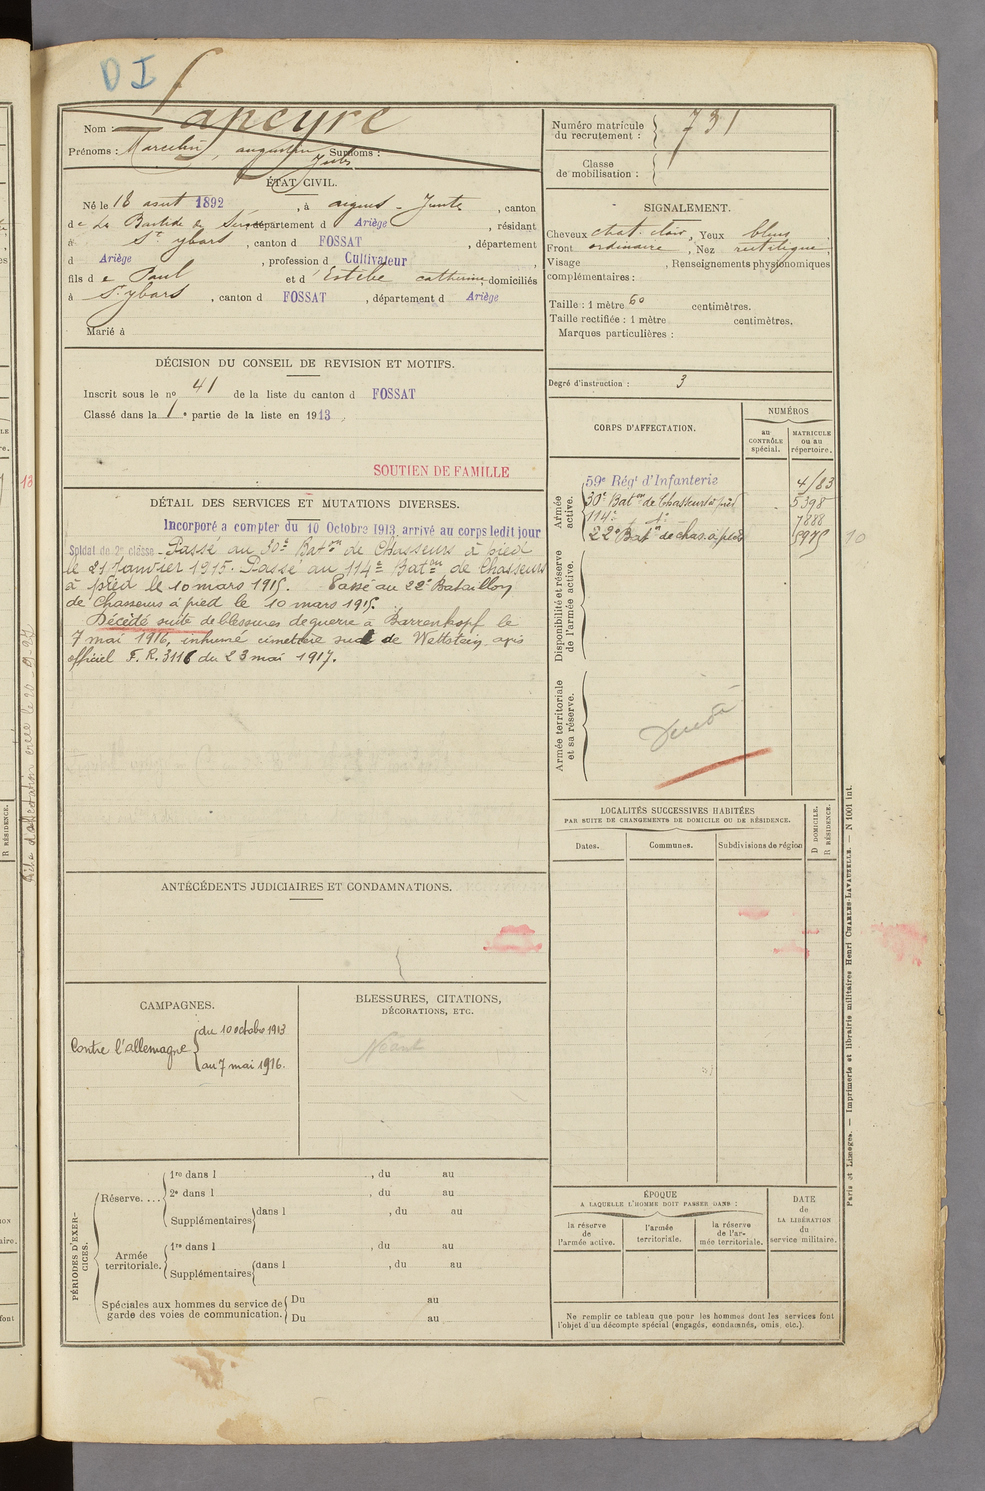 D I
Nom : Lapeyre
Prénoms : Marcelin, augustin Jules Surnoms :
ÉTAT CIVIL.
Né le 18 aout 1892, à aigues-Juntes, canton
de La Bastide de Sérou, département d Ariège, résidant
à St ybars, canton d FOSSAT, département
d Ariège, profession d Cultivateur,
fils de Paul et d' Estèbe catherine, domiciliés
à St ybars, canton d FOSSAT, département d Ariège
Marié à
DÉCISION DU CONSEIL DE REVISION ET MOTIFS.
Inscrit sous le no 41 de la liste du canton d FOSSAT
Classé dans la 1e partie de la liste en 1913,
SOUTIEN DE FAMILLE
DÉTAIL DES SERVICES ET MUTATIONS DIVERSES.
Incorporé a compter du 10 Octobre 1913, arrivé au corps ledit jour
Soldat de 2e classe - Passé au 30e Baton de Chasseurs à pied
le 21 Janvier 1915. Passé au 114e Baton de Chasseurs
à pied le 10 mars 1915. Passé au 22e Bataillon
de Chasseurs à pied le 10 mars 1915.
Décédé suite de blessures de guerre à Barrenkopf le
7 mai 1916, inhumé cimetière sud de Wettstein, avis
officiel F. R. 3116 du 23 mai 1917.
ANTÉCÉDENTS JUDICIAIRES ET CONDAMNATIONS.
CAMPAGNES.
Contre l'allemagne { du 10 octobre 1913
au 7 mai 1916.
BLESSURES, CITATIONS,
DÉCORATIONS, ETC.
Néant
PÉRIODES D'EXERCICES.
Réserve....
1re dans l , du au
2e dans l , du au
Supplémentaires dans l , du au
Armée territoriale.
1re dans l , du au
Supplémentaires dans l , du au
Spéciales aux hommes du service de garde des voies de communication.
Du au
Du au
Numéro matricule du recrutement : 731
Classe de mobilisation :
SIGNALEMENT.
Cheveux chat. clair, Yeux bleus
Front ordinaire, Nez rectiligne
Visage , Renseignements physionomiques
complémentaires :
Taille : 1 mètre 60 centimètres.
Taille rectifiée : 1 mètre centimètres.
Marques particulières :
Degré d'instruction : 3
CORPS D'AFFECTATION.
NUMÉROS
au CONTRÔLE spécial.
MATRICULE ou au répertoire.
Armée active.
59e Régt d'Infanterie 4183
30e Baton de Chasseurs à pied 5398
114e 7888
22e Baton de chas. à pied 5975
10
Disponibilité et réserve de l'armée active.
Armée territoriale et sa réserve.
LOCALITÉS SUCCESSIVES HABITÉES
PAR SUITE DE CHANGEMENTS DE DOMICILE OU DE RÉSIDENCE.
Dates. Communes. Subdivisions de région
D DOMICILE.
R RÉSIDENCE.
ÉPOQUE
A LAQUELLE L'HOMME DOIT PASSER DANS :
la réserve de l'armée active.
l'armée territoriale.
la réserve de l'armée territoriale.
DATE
de
LA LIBÉRATION
du
service militaire.
Ne remplir ce tableau que pour les hommes dont les services font
l'objet d'un décompte spécial (engagés, condamnés, omis, etc.).
Paris et Limoges. — Imprimerie et librairie militaires Henri CHARLES-LAVAUZELLE. — N 1001 int.
R RÉSIDENCE.